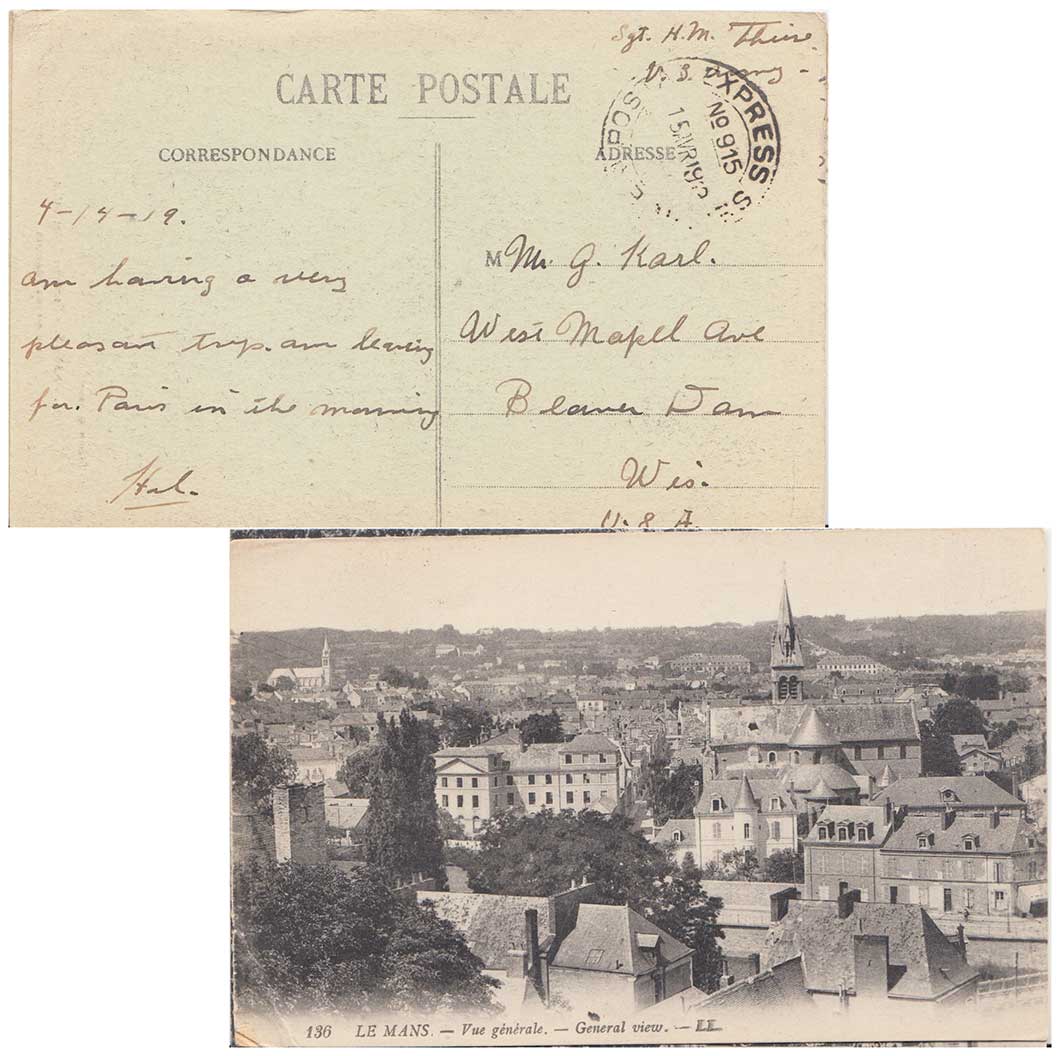 Sgt. H.M.
U. S. Army -
CARTE POSTALE
EXPRESS
No 915
CORRESPONDANCE
ADRESSE
4-14-19.
am having a very
pleasant trip. am leaving
for. Paris in the morning
Hal.
M Mr. G. Karl.
West Mapel Ave
Beaver Dam
Wis.
U. S. A.
136 LE MANS. — Vue générale. — General view. — LL